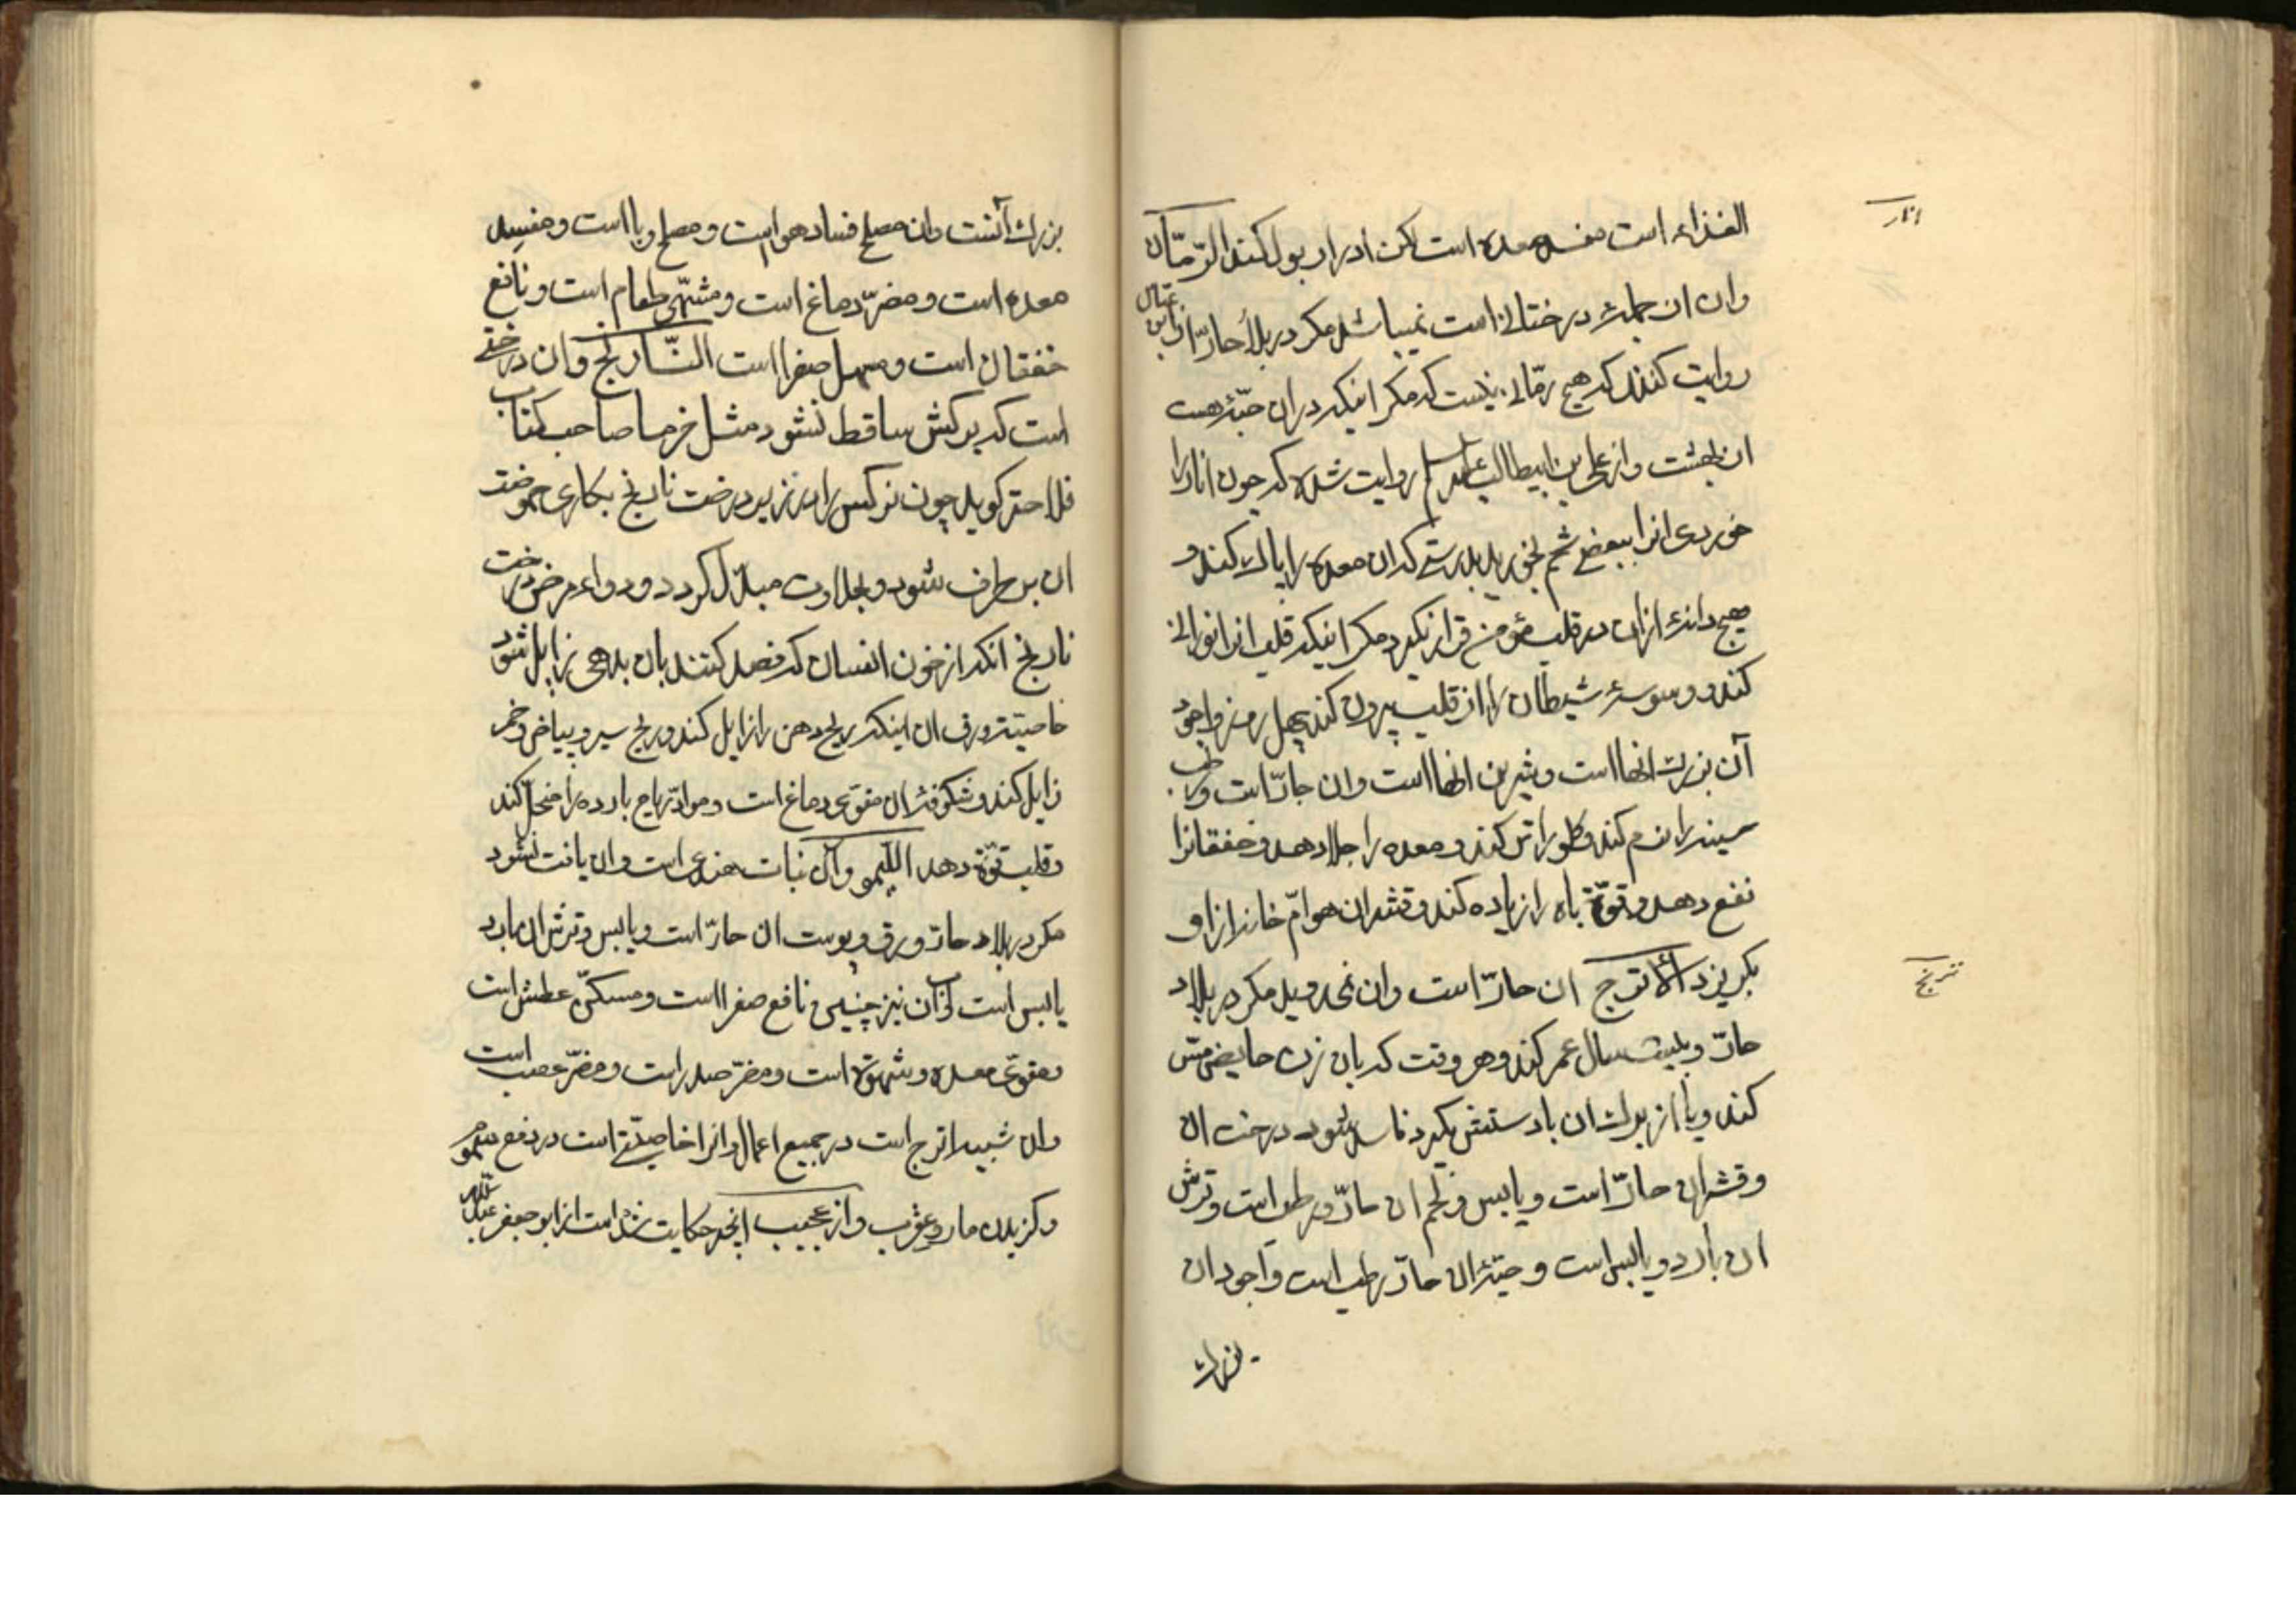 انار
الغذاء است مفسد معده است لکن ادرار بول کند الرّمّان
وان از جملهٔ درختانی است نمیباشد مکر در بلاد حارّ از ابن عباس
روایت کنند که هیچ رمّانی نیست که مکر اینکه در ان حبّهٔ هست
از بهشت و از علی بن ابیطالب علیه السلم روایت شده که چون انار را
خوردی انرا ببعض شحم بخورید بدرستیکه ان معده را پاک کند و
هیچ دانهٔ ازان در قلب مؤمن قرار نکیرد مکر اینکه قلب انرا نورانی
کند و وسوسهٔ شیطان را از قلب بیرون کند چهل روز واجود
آن بزرک انها است و شیرین انها است وان حارّ است ورطب
سینه را نرم کند وکلو را تر کند و معده را جلا دهد و خفقانرا
نفع دهد وقوّة باه را زیاده کند و قشر ان هوامّ خانه از او
ترنج
بکریزد الاترج ان حارّ است وان نمیروید مکر در بلاد
حارّ و بیست سال عمر کند و هر وقت که بان زن حایض مسّ
کند ویا از برک ان بادستش بکیرد فاسد شود درخت ان
وقشر ان حارّ است ویابس وتخم ان حارّ ورطب است وترش
ان بارد و یابس است و حبّهٔ ان حارّ رطب است واجود ان
بزرک
بزرک آنست وان مصلح فساد هواست و مصلح وبا است و مفسد
معده است و مضرّ دماغ است و مشهّی طعام است و نافع
خفقان است و مسهل صفرا است النّارنج وان درختی
است که برکش ساقط نشود مثل خرما صاحب کتاب
فلاحة کوید چون نرکس را در زیر درخت نارنج بکاری حموضت
ان بر طرف شود و بحلاوت مبدّل کردد و دواء مرض درخت
نارنج انکه از خون انسان که فصد کنند بان بدهی زایل شود
خاصیّت ورق ان اینکه ریح دهن را زایل کند وریح سیر و پیاز و خمر
زایل کند و شکوفهٔ ان مقوّی دماغ است و مواد ریاح بارده را منحلّ کند
وقلب قوّة دهد اللّیمو وان نبات هندی است وان یافت نشود
مکر در بلاد حارّ و ورق و پوست ان حارّ است ویابس وترش ان بارد
یابس است و آب ان نیز چنین و نافع صفرا است و مسکّن عطش است
ومقوّی معده و شهوة است ومضرّ صدر است ومضرّ عصب است
وان شبیه اترج است در جمیع اعمال وانرا خاصیّتی است در دفع سموم
وکزیدن مار و عقرب واز عجیب انچه حکایت شده است از ابو جعفر عبد الله